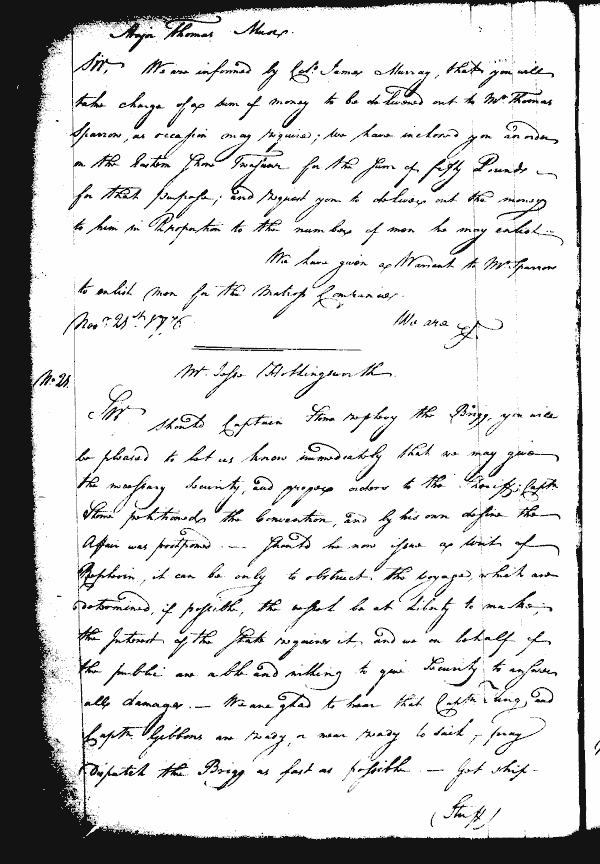 Major Thomas Muse.
Sir, We are informed by Colo. James Murray, that you will
take charge of a sum of money to be delivered out to Mr. Thomas
Sparrow, as occasion may require; we have inclosed you an order
on the Eastern Shore Treasurer for the Sum of fifty Pounds
for that purpose; and request you to deliver out the money
to him in Proportion to the number of men he may enlist.
We have given a Warrant to Mr. Sparrow
to enlist men for the Matross Companies.
Novr. 25th 1776. We are &c
No. 25. Mr. Jesse Hollingsworth.
Sir Should Captain Stone replevy the Brigg, you will
be pleased to let us know immediately that we may give
the necessary Security, and proper orders to the Sheriff; Captn.
Stone petitioned the Convention, and by his own desire the
Affair was postponed. — Should he now issue a writ of
Replevin, it can be only to obstruct the voyage, which we are
determined, if possible, the shall be at Liberty to make,
the Interest of the State requires it, and we on behalf of
the public are able and willing to give Security to answer
all damages. — We are glad to hear that Captn. and
Captn. Gibbons are ready, or near ready to sail, — pray
Dispatch the Brigg as fast as possible. — Get ship-
(Stuff)